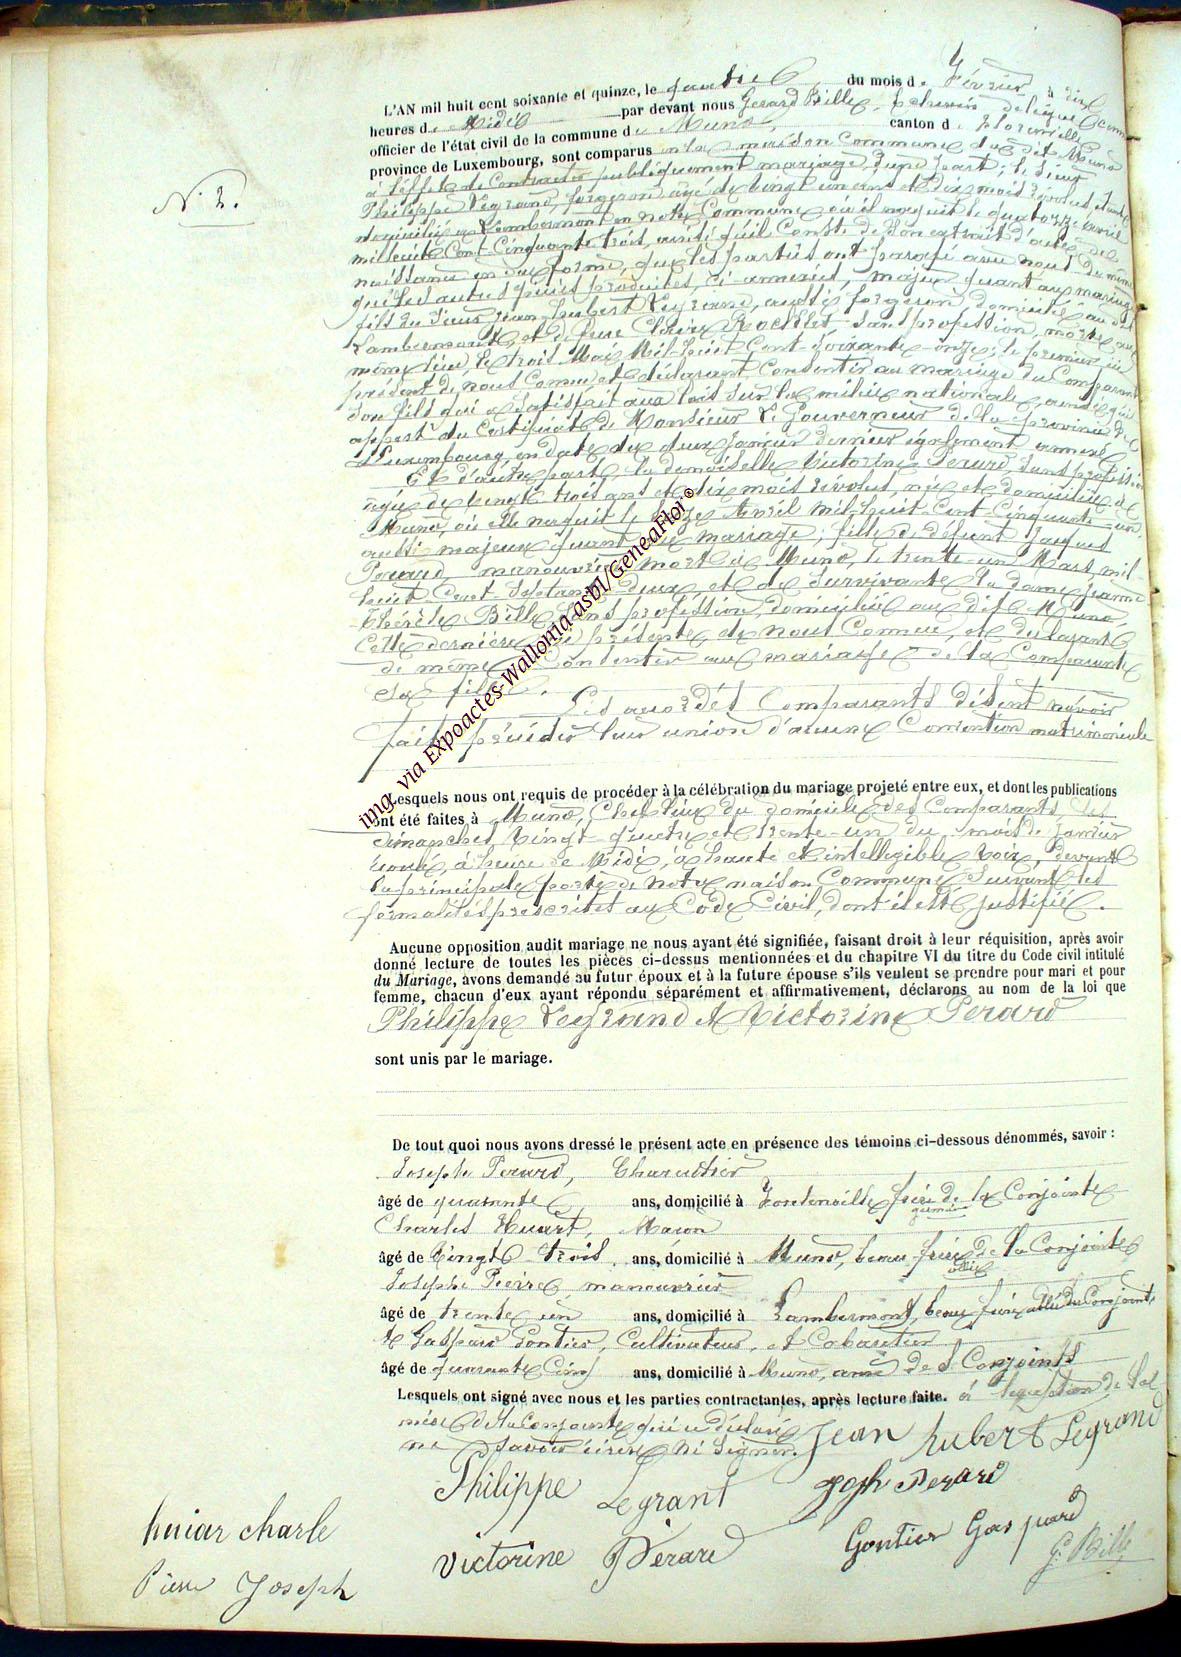 N° 2.
L'AN mil huit cent soixante et quinze, le du mois de Février à dix
heures de Midi par devant nous Gérard Bille, Echevin délégué comme
officier de l'état civil de la commune de Muno, canton de Florenville
province de Luxembourg, sont comparus en la maison Commune du dit Muno
à l'effet de Contracter publiquement mariage, d'une part; le Sieur
Philippe Legrand, forgeron, âgé de vingt un ans et dix mois révolus, et
domicilié à Lambermont en notre Commune où il naquit le quatorze avril
mil huit Cent Cinquante trois, ainsi qu'il Conste de son extrait d'acte de
naissance en due forme, que les parties ont parafé avec nous de même
que les autres pièces produites, ci-annexées, majeur quant au mariage
fils du Sieur Jean-hubert Legrand, aussi forgeron, domicilié au dit
Lambermont, et de feue Rochelet, sans profession, morte au
même lieu, le trois Mai Mil-huit Cent-soixante-onze; le premier ici
présent de nous Connu, et déclarant Consentir au mariage du Comparant
son fils qui a Satisfait aux lois sur la milice nationale, ainsi qu'il
appert du Certificat de Monsieur le Gouverneur de la province de
Luxembourg, en date du deux Janvier dernier également annexé
Et d'autre part, la demoiselle Victorine Perard, sans profession
âgée de vingt trois ans et dix mois révolus, née et domiciliée à
Muno, où elle naquit le Avril mil-huit-Cent-Cinquante-un,
aussi majeure quant au mariage; fille de défunt Jacques
Perard, manouvrier, mort à Muno, le trente-un Mars mil-
huit Cent-Septante-deux, et de Survivante la dame Jeanne
Thérèse Bille, sans profession, domiciliée au dit Muno,
Cette dernière ici présente, de nous Connue, et déclarant
de même Consentir au mariage de la Comparante
sa fille.
Les Comparants disent n'avoir
fait précéder leur union d'aucune Convention matrimoniale
Lesquels nous ont requis de procéder à la célébration du mariage projeté entre eux, et dont les publications
ont été faites à Muno, Chef-lieu du domicile des Comparants, les
dimanches vingt-quatre et trente-un du mois de Janvier
écoulé, à heure de Midi, à haute et intelligible voix, devant
la principale porte de notre maison Commune, Suivant les
formalités prescrites au Code Civil, dont il est justifié.
Aucune opposition audit mariage ne nous ayant été signifiée, faisant droit à leur réquisition, après avoir
donné lecture de toutes les pièces ci-dessus mentionnées et du chapitre VI du titre du Code civil intitulé
du Mariage, avons demandé au futur époux et à la future épouse s'ils veulent se prendre pour mari et pour
femme, chacun d'eux ayant répondu séparément et affirmativement, déclarons au nom de la loi que
Philippe Legrand et Victorine Perard
sont unis par le mariage.
De tout quoi nous avons dressé le présent acte en présence des témoins ci-dessous dénommés, savoir :
Joseph Perard, Charcutier
âgé de quarante ans, domicilié à Fontenoille, frère de la Conjointe
germain
Charles Huart, Maçon
âgé de vingt-trois ans, domicilié à Muno, beau-frère de la Conjointe
allié
Joseph Pierre, manouvrier
âgé de trente un ans, domicilié à Lambermont, beau frère allié du Conjoint
et Gaspard Gontier, Cultivateur, et Cabaretier
âgé de quarante Cinq ans, domicilié à Muno, ami des Conjoints
Lesquels ont signé avec nous et les parties contractantes, après lecture faite. à l'exception de la
mère de la Conjointe qui a déclaré
ne savoir écrire ni signer. Jean hubert Legrand
Philippe Legrant Joseph Perard
huiar charle Victorine Perard Gontier Gaspard
Pierre Joseph G. Bille
img. via Expoactes-Wallonia-asbl/GeneaFloi ©